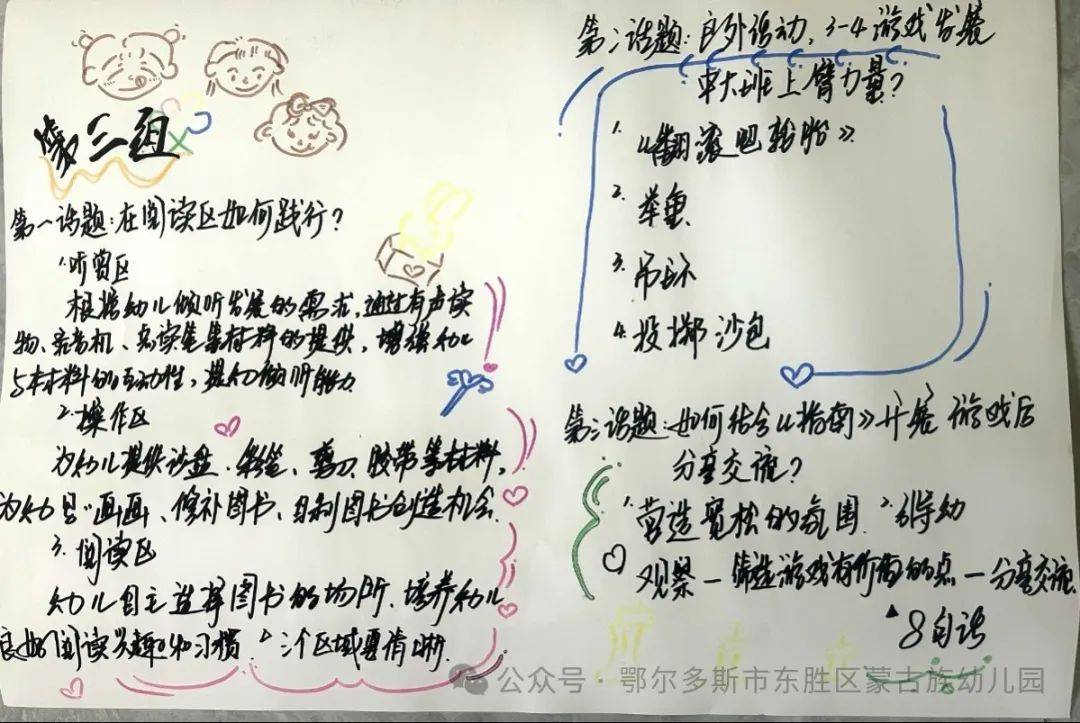 第三组
第一话题:在阅读区如何践行?
1.听赏区
根据幼儿倾听发展的需求,通过有声读
物、录音机、点读笔等材料的提供,增强幼儿
与本材料的互动性,提幼倾听能力
2.操作区
为幼儿提供沙盘、彩笔、剪刀、胶带等材料,
为幼儿 画画、修补图书、自制图书创造机会
3.阅读区
幼儿自主选择图书的场所,培养幼儿
良好阅读兴趣和习惯 三个区域要清晰
第二话题:户外活动,3-4游戏发展
大班上臂力量?
1.《翻滚吧轮胎》
2.举重
3.吊环
4.投掷沙包
第三话题:如何结合《指南》开展游戏后
分享交流?
1.营造宽松的氛围 2.引导幼
观察—筛选游戏有价值的点—分享交流
8句话
公众号·鄂尔多斯市东胜区蒙古族幼儿园